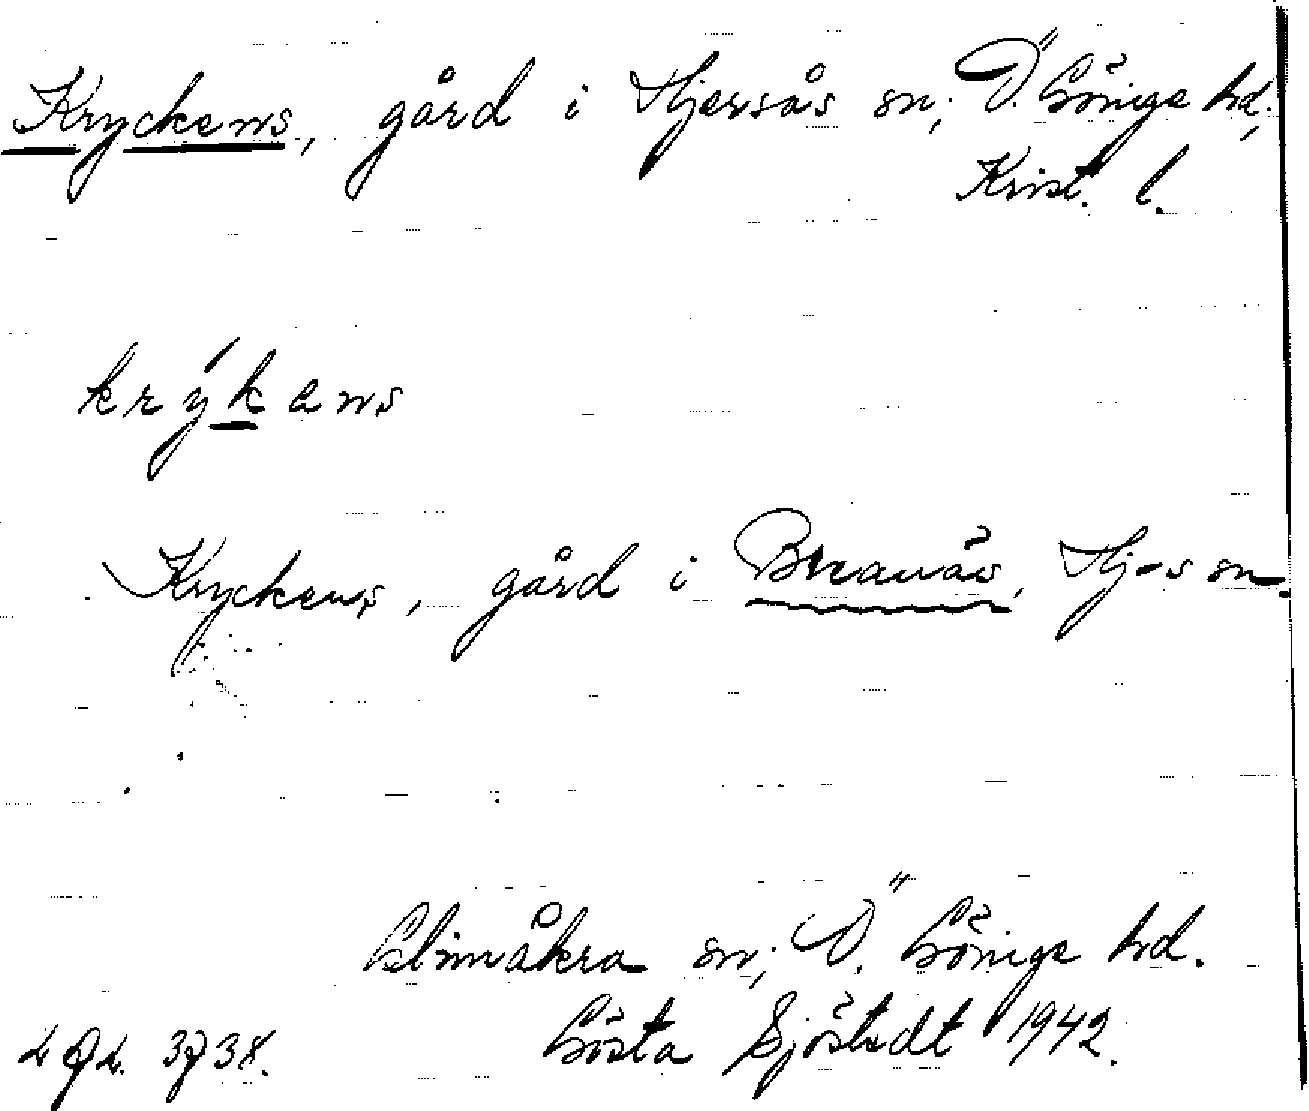 Kryckens, gård i Hjersås sn, Ö. Göinge hd,
Krist. l.
krýkens
Kryckens, gård i Breanäs, Hj-s sn
Glimåkra sn, Ö. Göinge hd.
Gösta Sjöstedt 1942.
3738.